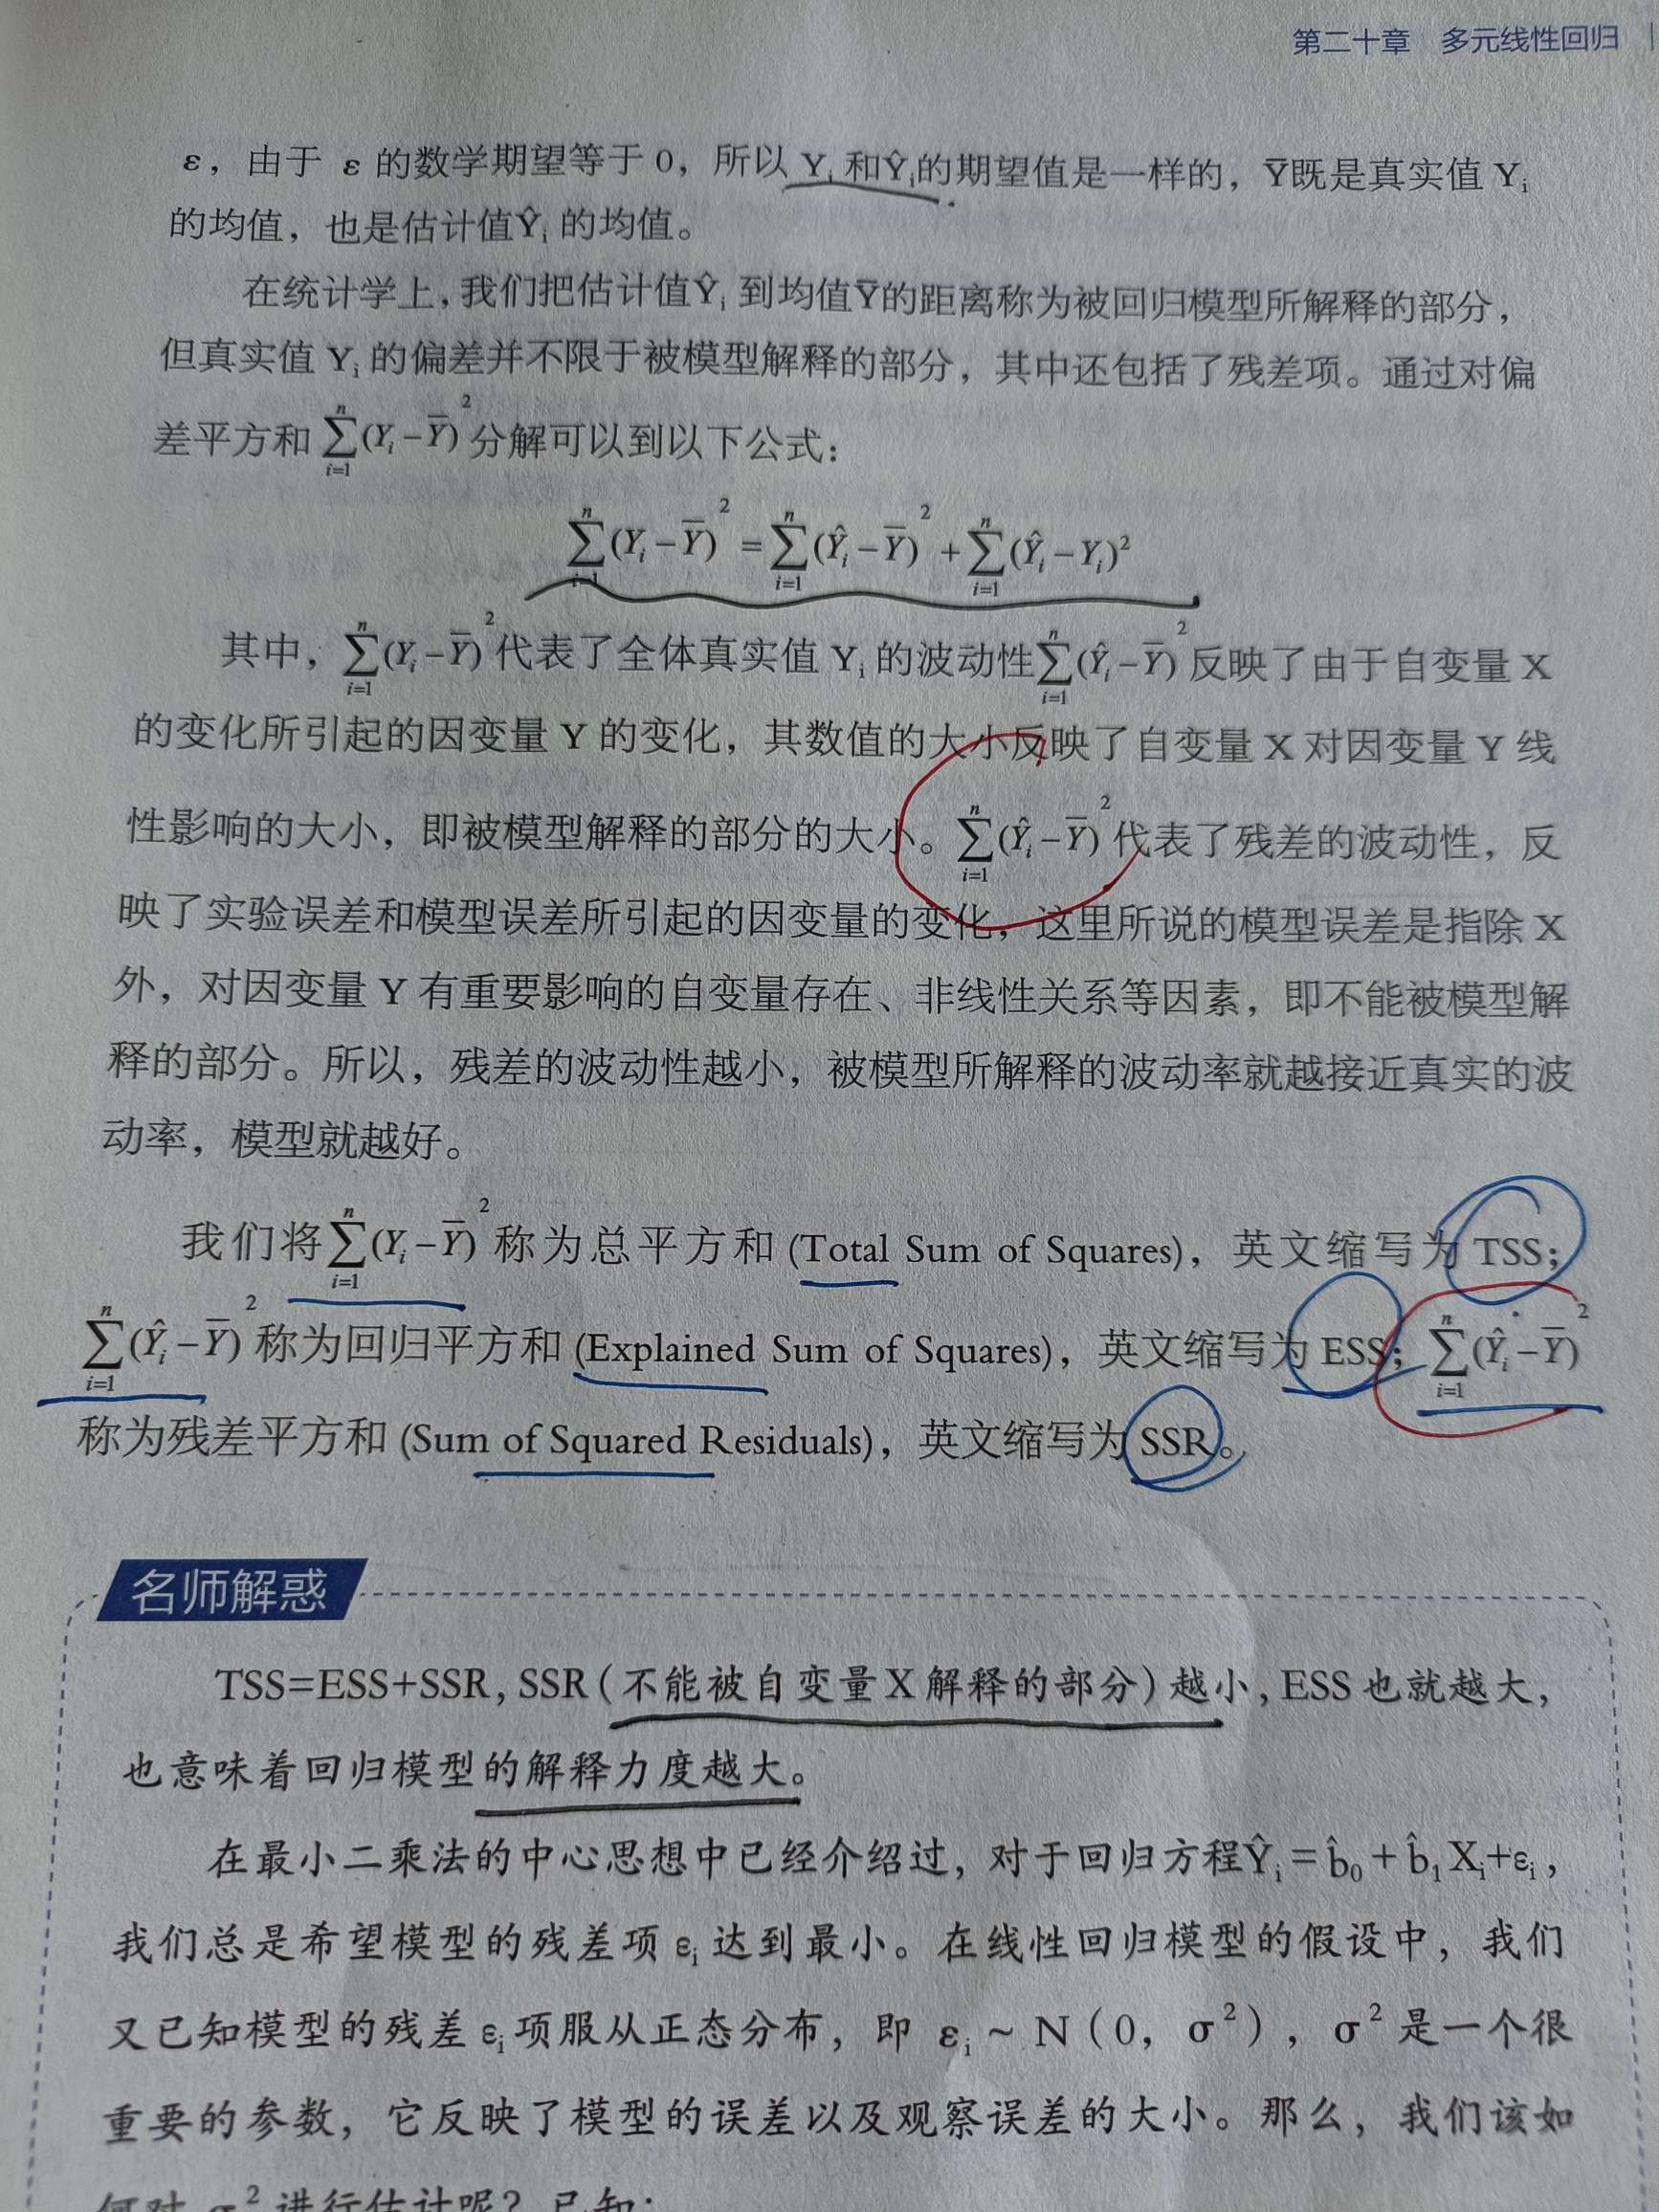 第二十章 多元线性回归
ε，由于 ε 的数学期望等于 0，所以 Yᵢ 和Ŷᵢ的期望值是一样的，Ȳ既是真实值 Yᵢ
的均值，也是估计值Ŷᵢ 的均值。
在统计学上，我们把估计值Ŷᵢ 到均值Ȳ的距离称为被回归模型所解释的部分，
但真实值 Yᵢ 的偏差并不限于被模型解释的部分，其中还包括了残差项。通过对偏
差平方和 ∑ᵢ₌₁ⁿ(Yᵢ−Ȳ)² 分解可以到以下公式：
∑ᵢ₌₁ⁿ(Yᵢ−Ȳ)² = ∑ᵢ₌₁ⁿ(Ŷᵢ−Ȳ)² + ∑ᵢ₌₁ⁿ(Ŷᵢ−Yᵢ)²
其中，∑ᵢ₌₁ⁿ(Yᵢ−Ȳ)² 代表了全体真实值 Yᵢ 的波动性∑ᵢ₌₁ⁿ(Ŷᵢ−Ȳ)² 反映了由于自变量 X
的变化所引起的因变量 Y 的变化，其数值的大小反映了自变量 X 对因变量 Y 线
性影响的大小，即被模型解释的部分的大小。∑ᵢ₌₁ⁿ(Ŷᵢ−Ȳ)² 代表了残差的波动性，反
映了实验误差和模型误差所引起的因变量的变化，这里所说的模型误差是指除 X
外，对因变量 Y 有重要影响的自变量存在、非线性关系等因素，即不能被模型解
释的部分。所以，残差的波动性越小，被模型所解释的波动率就越接近真实的波
动率，模型就越好。
我们将∑ᵢ₌₁ⁿ(Yᵢ−Ȳ)² 称为总平方和 (Total Sum of Squares)，英文缩写为 TSS；
∑ᵢ₌₁ⁿ(Ŷᵢ−Ȳ)² 称为回归平方和 (Explained Sum of Squares)，英文缩写为 ESS；∑ᵢ₌₁ⁿ(Ŷᵢ−Ȳ)²
称为残差平方和 (Sum of Squared Residuals)，英文缩写为 SSR。
名师解惑
TSS=ESS+SSR, SSR (不能被自变量 X 解释的部分) 越小, ESS 也就越大，
也意味着回归模型的解释力度越大。
在最小二乘法的中心思想中已经介绍过，对于回归方程Ŷᵢ = b̂₀ + b̂₁ Xᵢ+εᵢ，
我们总是希望模型的残差项 εᵢ 达到最小。在线性回归模型的假设中，我们
又已知模型的残差 εᵢ 项服从正态分布，即 εᵢ ~ N（0，σ²），σ² 是一个很
重要的参数，它反映了模型的误差以及观察误差的大小。那么，我们该如
何对 σ² 进行估计呢？已知：